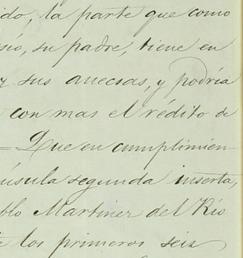 ido, la parte que como
sio, su padre, tiene en
y sus anecsas, y podria
con mas el rédito de
= Que en cumplimien
úsula segunda inserta,
blo Martinez del Rio
los primeros seis